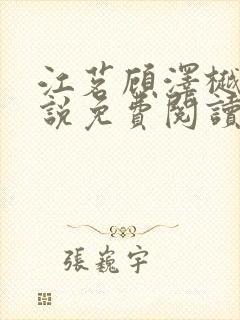 江茗顾澤樾
說免費閱讀
張巍宇